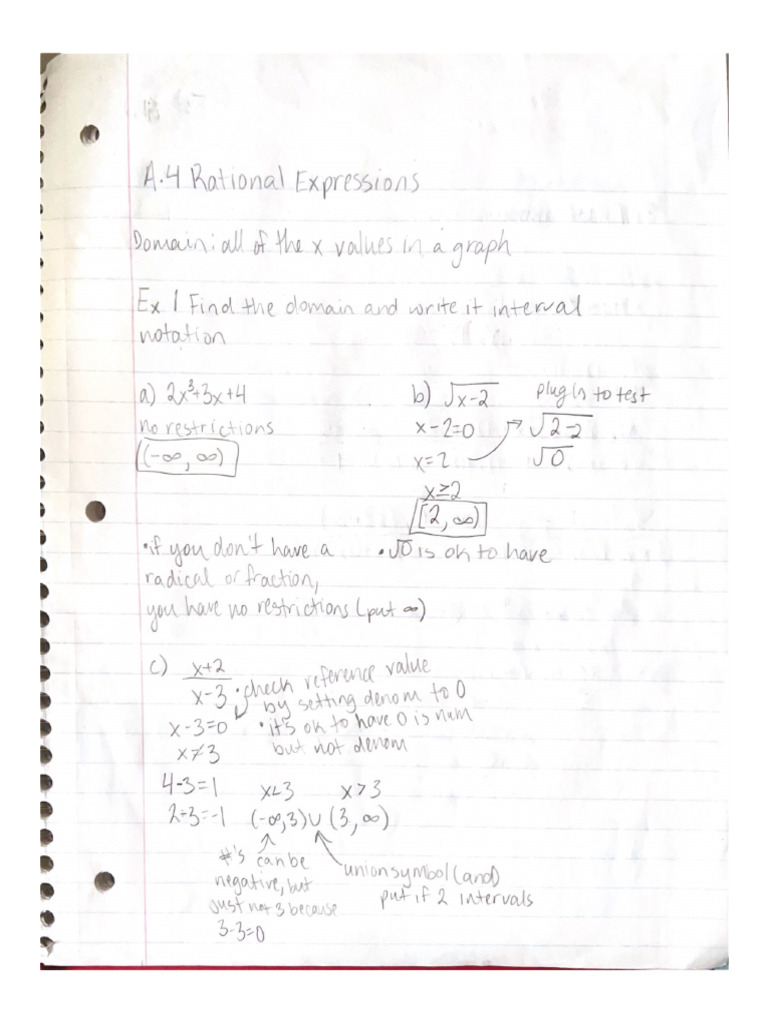 A.4 Rational Expressions
Domain: all of the x values in a graph
Ex 1 Find the domain and write it interval
notation
a) 2x³+3x+4
no restrictions
(-∞, ∞)
b) √x-2
x-2=0
x=2
x≥2
[2, ∞)
plug in to test
√2-2
√0
•if you don't have a
radical or fraction,
you have no restrictions (put ∞)
•√0 is ok to have
c) x+2
x-3
x-3=0
x≠3
•check reference value
by setting denom to 0
•it's ok to have 0 is num
but not denom
4-3=1 x<3 x>3
2-3=-1 (-∞,3)∪(3,∞)
#'s can be
negative, but
just not 3 because
3-3=0
union symbol (and)
put if 2 intervals